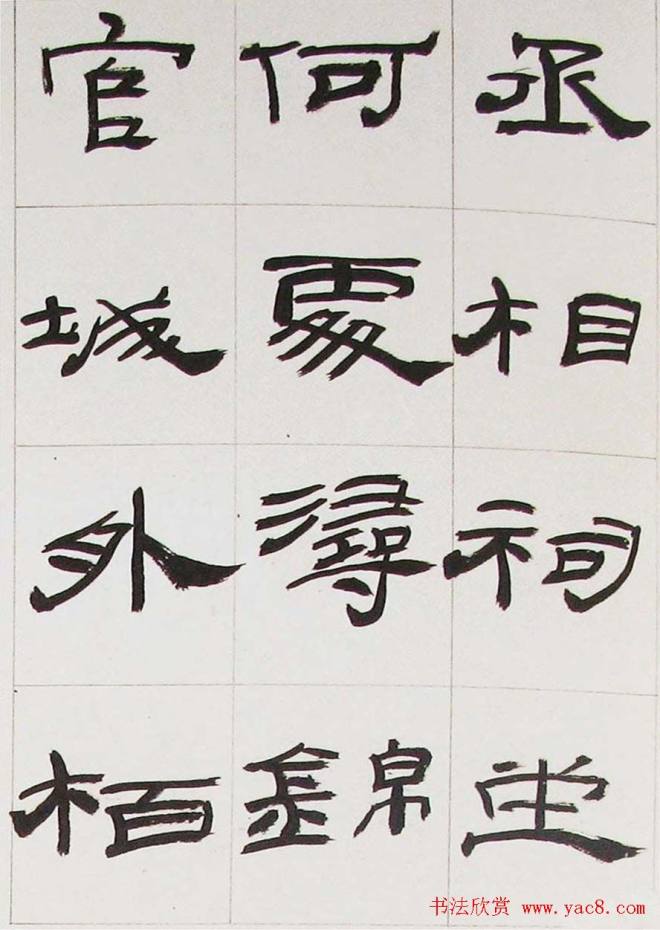 丞相祠堂
何處潯錦
官城外栢
书法欣赏 www.yac8.com